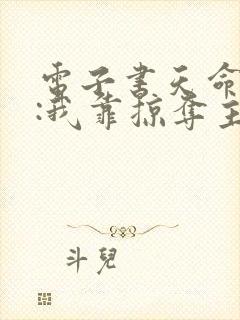 電子書天命
:我靠掠奪主
斗兒